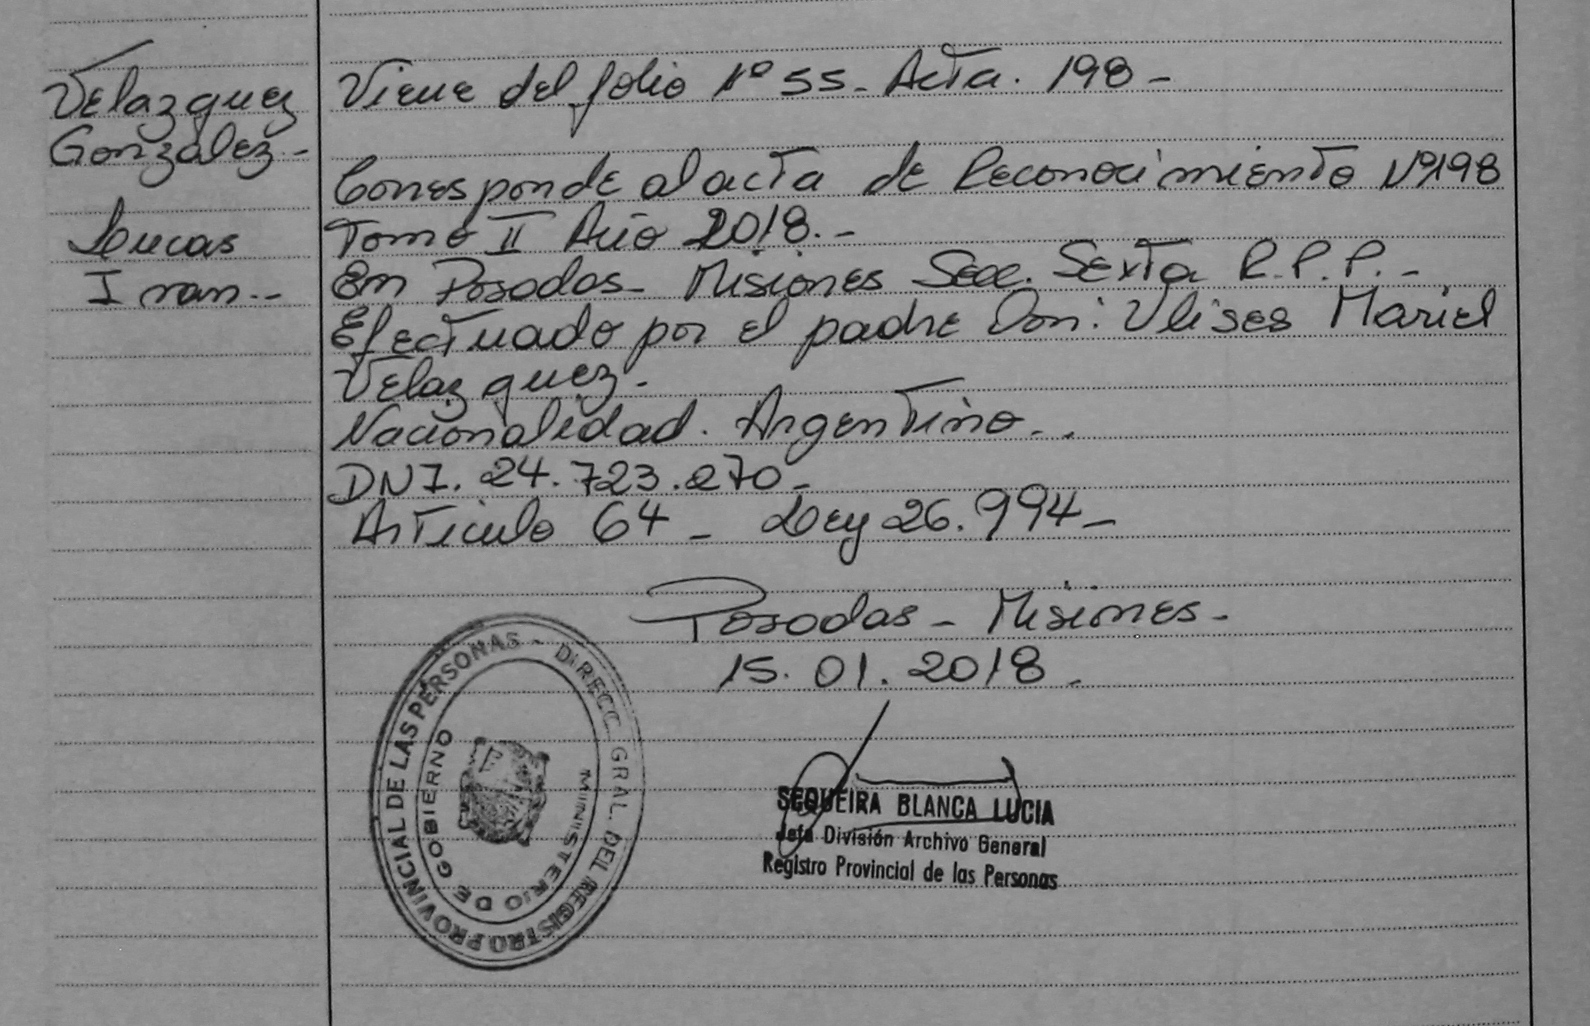 Velazquez
Gonzalez.-
Lucas
Ivan.-
Viene del folio Nº 55- Acta. 198-
Corresponde al acta de Reconocimiento Nº198
Tomo II Año 2018.-
En Posadas- Misiones Secc. Sexta R.P.P.-
Efectuado por el padre Don: Ulises Mariel
Velazquez.
Nacionalidad. Argentino..
DNI. 24.723.270-
Articulo 64- Ley 26.994-
Posadas- Misiones-
15.01.2018-
DIRECC. GRAL. DEL REGISTRO PROVINCIAL DE LAS PERSONAS -
MINISTERIO DE GOBIERNO
SEQUEIRA BLANCA LUCIA
Jefa División Archivo General
Registro Provincial de las Personas